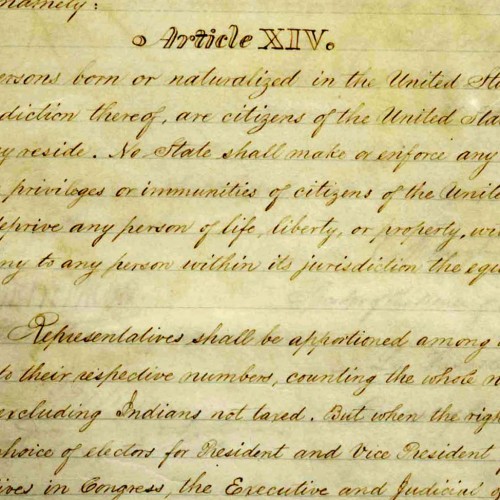 namely:
Article XIV.
ersons born or naturalized in the United Sta
diction thereof, are citizens of the United Sta
y reside. No State shall make or enforce any
privileges or immunities of citizens of the Unite
deprive any person of life, liberty, or property, wi
ny to any person within its jurisdiction the equ
Representatives shall be apportioned among
to their respective numbers, counting the whole n
excluding Indians not taxed. But when the righ
choice of electors for President and Vice President
ives in Congress, the Executive and Judicial